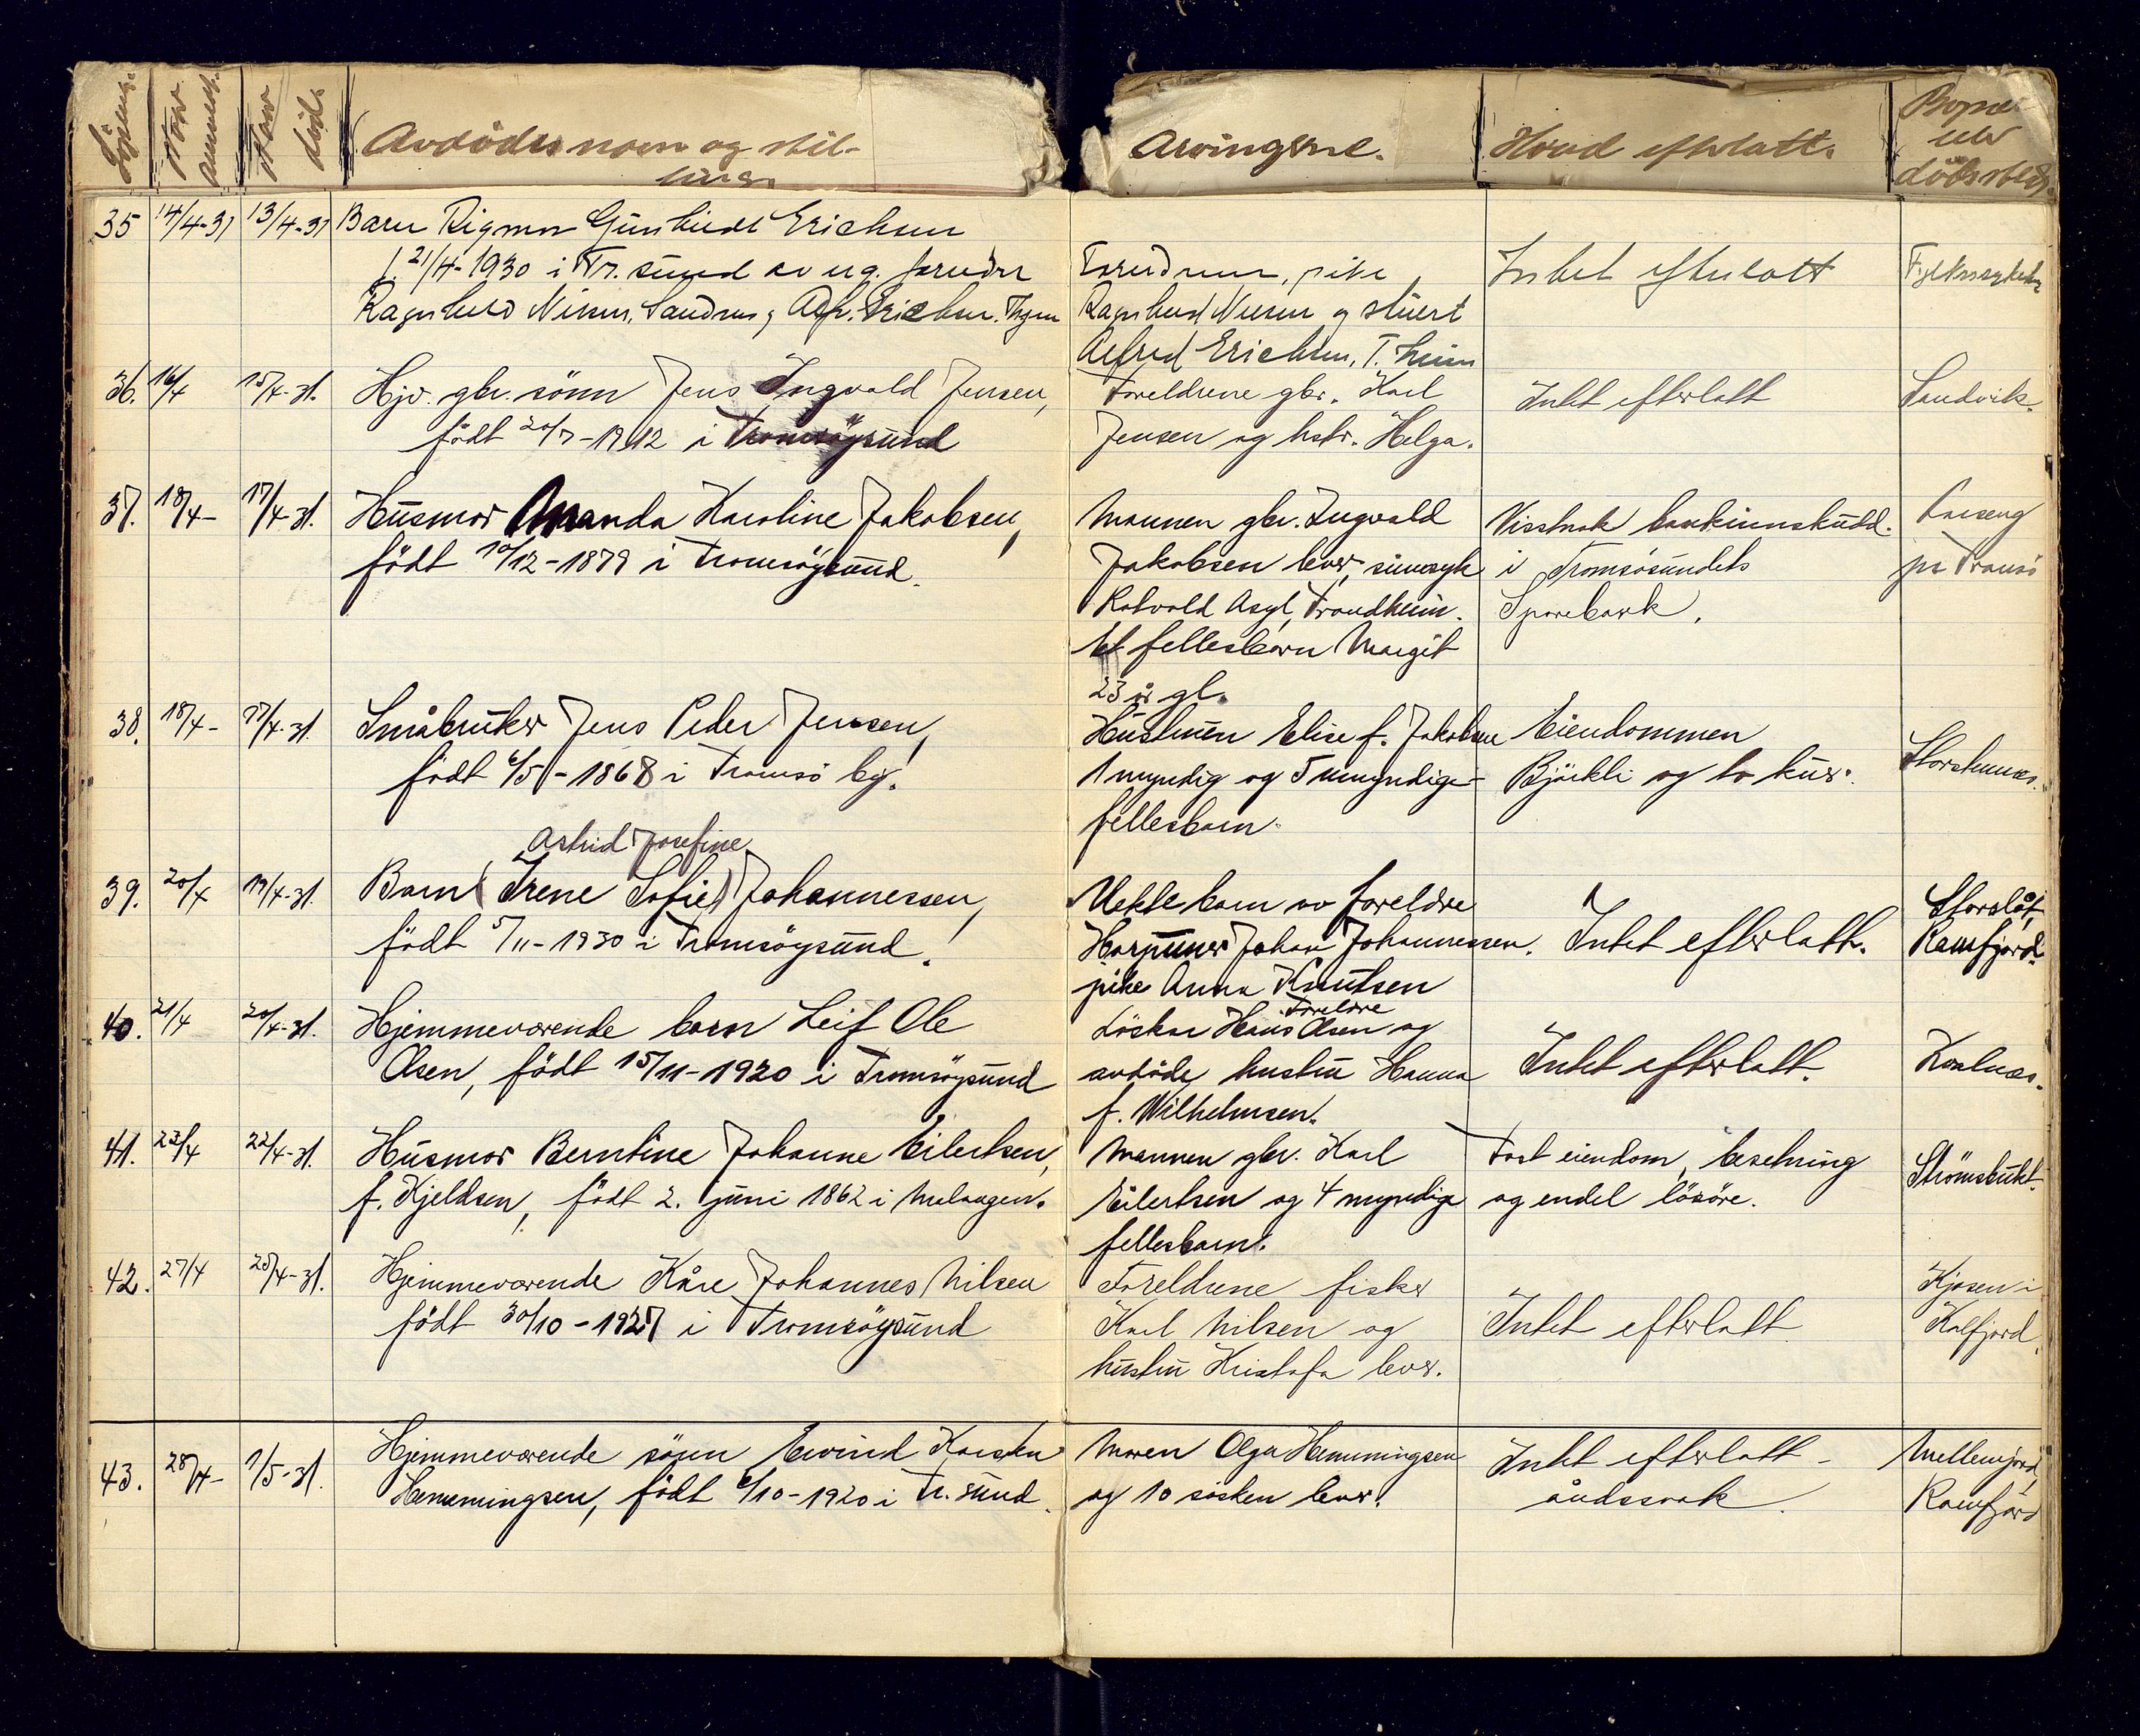 Löpenr.
Naar anmeldt.
Naar död.
Avdödes navn og stil-
ling.
Arvingerne.
Hvad efterlatt.
Bopæl
eller
dödssted.
35 14/4-31 13/4-31 Barn Rigmor Gunhild Erichsen
f. 21/4-1930 i Tr. sund av ug. foreldre
Ragnhild Nilsen, Sandnes, Alfr. Erichsen.
Foreldrene, pike
Ragnhild Nilsen og stuert
Alfred Erichsen, T.heim
Intet efterlatt
Fylkessykeh.
36. 16/4 15/4-31. Hjv. gbr. sönn Jens Ingvald Jensen,
födt 20/7-1912 i Tromsöysund
Foreldrene gbr. Karl
Jensen og hstr. Helga.
Intet efterlatt
Sandvik.
37. 18/4- 17/4-31. Husmor Amanda Karoline Jakobsen,
födt 10/12-1879 i Tromsöysund.
Mannen gbr. Ingvald
Jakobsen lever, sinnsyk
Rotvold Asyl, Trondheim.
Et fellesbarn Margit
23 år gl.
Visstnok bankinnskudd.
i Tromsösundets
Sparebank.
på Tromsö
38. 18/4- 17/4-31. Småbruker Jens Peder Jensen,
födt 6/5-1868 i Tromsö by.
Hustruen Elise f. Jakobsen
1 myndig og 5 umyndige
fellesbarn.
Eiendommen
Björkli og to kur.
Storskumnes.
Astrid Josefine
39. 20/4 19/4-31. Barn (Irene Sofie) Johannessen,
födt 5/11-1930 i Tromsöysund.
Uekte barn av foreldre
Harpuner Johan Johannessen.
pike Anna Knutsen
Intet efterlatt.
Storslåt,
Ramfjord.
40. 21/4 20/4-31. Hjemmeværende barn Leif Ole
Olsen, födt 15/11-1920 i Tromsöysund
Foreldre
Löskar Hans Olsen og
avdöde hustru Hanna
f. Wilhelmsen.
Intet efterlatt.
Kvalnes.
41. 23/4 22/4-31. Husmor Berntine Johanne Eilertsen,
f. Kjeldsen, födt 2. juni 1862 i Malangen.
Mannen gbr. Karl
Eilertsen og 4 myndige
fellesbarn.
Fast eiendom, besetning
og endel lösöre.
Strömsbukt.
42. 27/4 25/4-31. Hjemmeværende Kåre Johannes Nilsen
födt 30/10-1927 i Tromsöysund
Foreldrene fisker
Karl Nilsen og
hustru Kristofa lever.
Intet efterlatt
Kjosen i
Kalfjord.
43. 28/4- 1/5-31. Hjemmeværende sönn Eivind Karsten
Hemmingsen, födt 6/10-1920 i Tr. sund.
Moren Olga Hemmingsen
og 10 sösken lever.
Intet efterlatt -
åndssvak.
Mellemjord,
Ramfjord